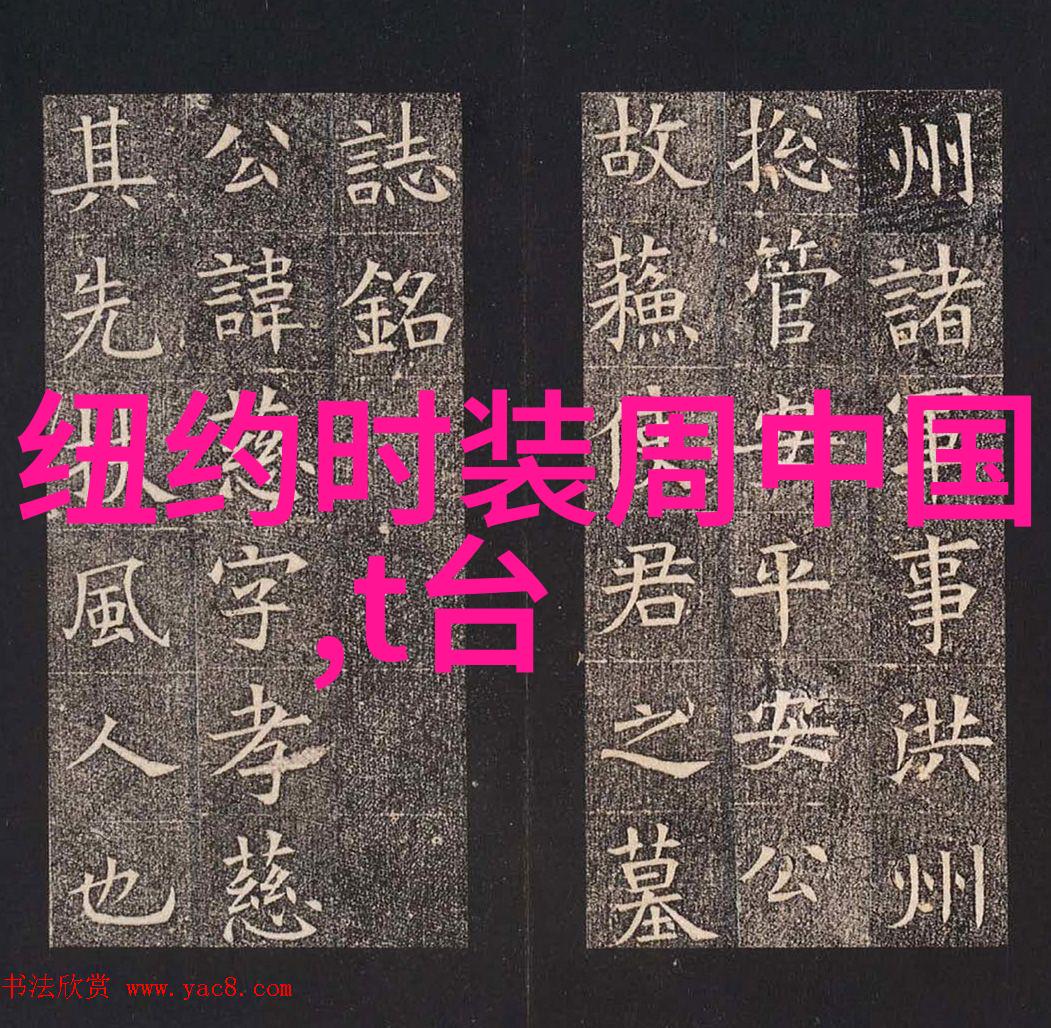 州諸軍事洪州
捴管安平安公
故蘓使君之墓
誌銘
公諱慈字孝慈
其先扶風人也
纽约时装周中国
,t台
书法欣赏 www.yac8.com